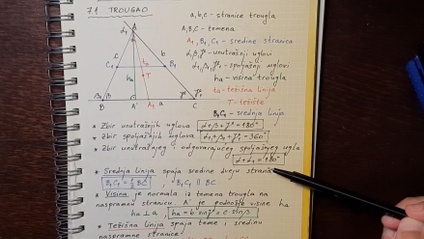 7.1 TROUGAO
a,b,c - stranice trougla
A,B,C - temena
A₁, B₁, C₁ - sredine stranica
α,β,γ - unutrašnji uglovi
α₁,β₁,γ₁ - spoljašnji uglovi
ha - visina trougla
ta - težišna linija
T - težište
B₁C₁ - srednja linija
A
α₁
c
b
ta
C₁
B₁
ha
T
β₁
γ₁
B
A'
A₁
a
C
* Zbir unutrašnjih uglova α+β+γ=180°
* Zbir spoljašnjih uglova α₁+β₁+γ₁=360°
* Zbir unutrašnjeg i odgovarajućeg spoljašnjeg ugla
α+α₁=180°
* Srednja linija spaja sredine dveju stranica
B₁C₁ = 1/2 BC, B₁C₁ || BC
* Visina je normala iz temena trougla na
naspramnu stranicu. A' je podnožje visine ha
ha ⊥ a, ha = b sinγ = c·sinβ
* Težišna linija spaja teme i sredinu
naspramne stranice.